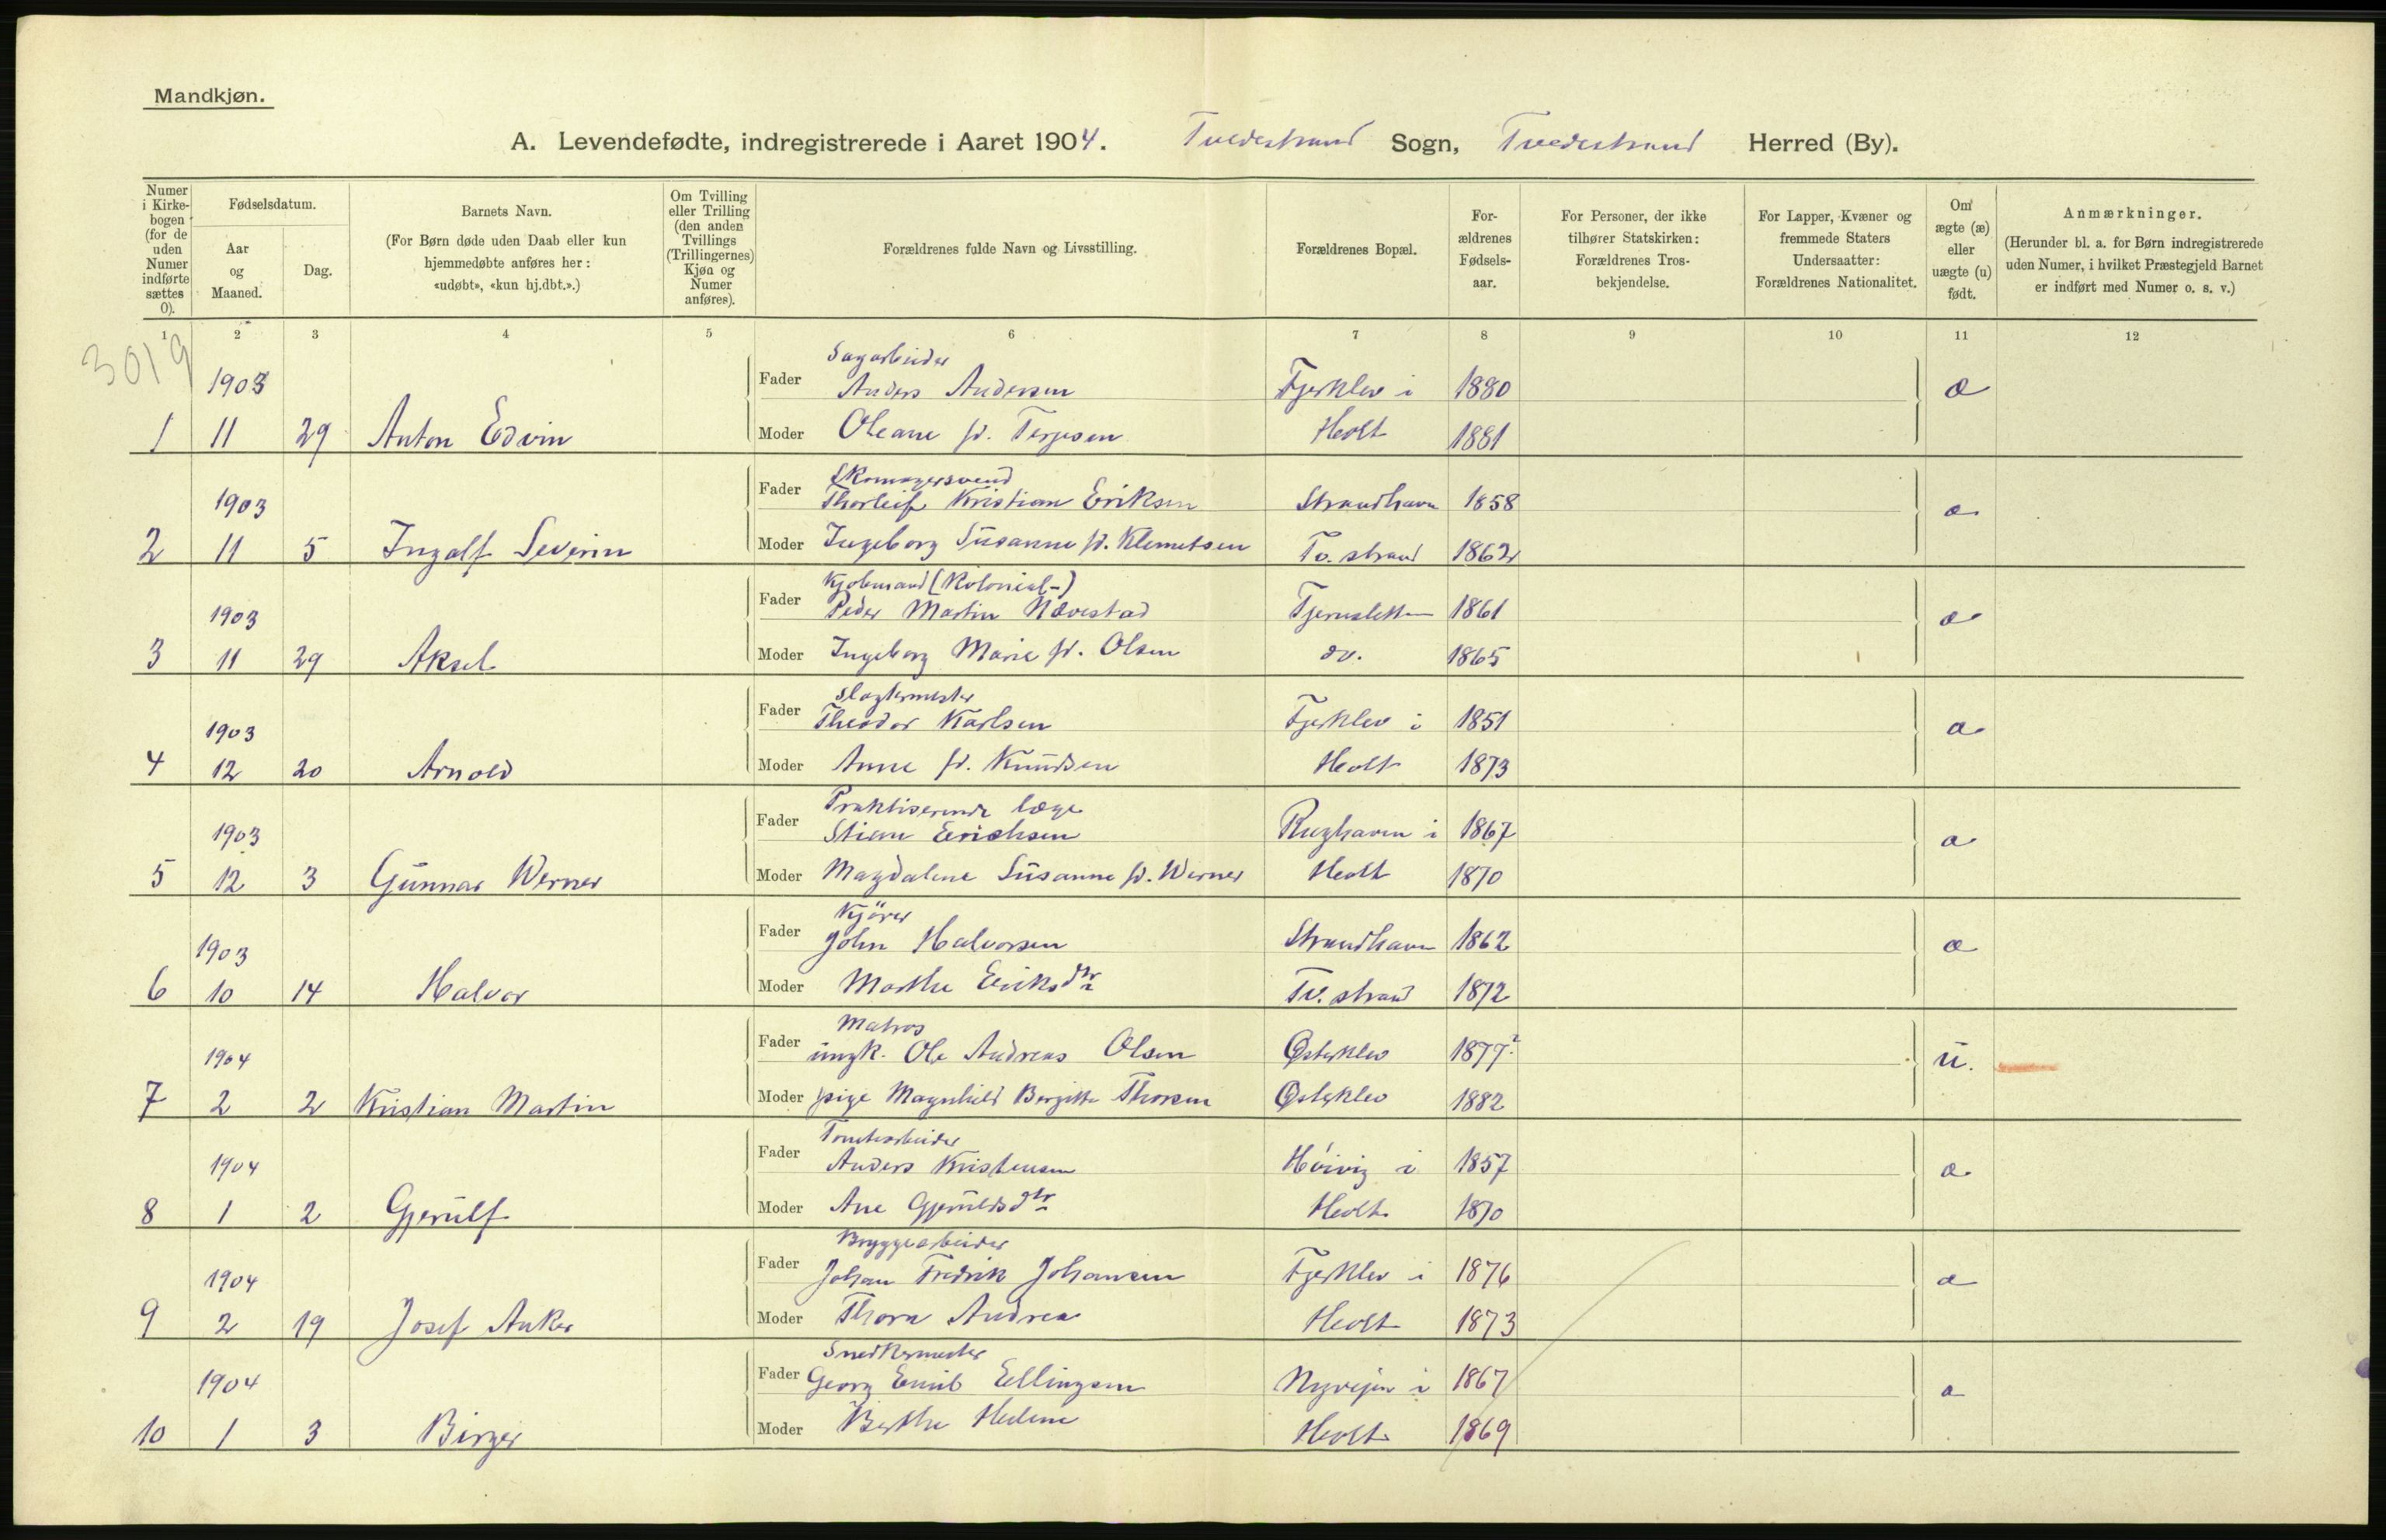 Mandkjøn.
A. Levendefødte, indregistrerede i Aaret 1904. Tvedestrand Sogn, Tvedestrand Herred (By).
Numer i Kirke-bogen (for de uden Numer indførte sættes 0).
Fødselsdatum.
Aar og Maaned.
Dag.
Barnets Navn.
(For Børn døde uden Daab eller kun hjemmedøbte anføres her: «udøbt», «kun hj.dbt.».)
Om Tvilling eller Trilling (den anden Tvillings (Trillingernes) Kjøn og Numer anføres).
Forældrenes fulde Navn og Livsstilling.
Forældrenes Bopæl.
For-ældrenes Fødsels-aar.
For Personer, der ikke tilhører Statskirken: Forældrenes Tros-bekjendelse.
For Lapper, Kvæner og fremmede Staters Undersaatter: Forældrenes Nationalitet.
Om ægte (æ) eller uægte (u) født.
Anmærkninger.
(Herunder bl. a. for Børn indregistrerede uden Numer, i hvilket Præstegjeld Barnet er indført med Numer o. s. v.)
1 2 3 4 5 6 7 8 9 10 11 12
3019
Sagarbeider
1903 Fader Anders Andersen Fjerklev i 1880 æ
1 11 29 Anton Edvin Moder Oleane fd. Terjesen Holt 1881
Skomagersvend
1903 Fader Thorleif Kristian Eriksen Strandhavn 1858 æ
2 11 5 Ingolf Severin Moder Ingeborg Susanne fd. Klemetsen Tv. strand 1862
Kjøbmand (Kolonial-)
1903 Fader Peder Martin Nævestad Tjernsletten 1861 æ
3 11 29 Aksel Moder Ingeborg Marie fd. Olsen do. 1865
Slagtermester
1903 Fader Theodor Karlsen Fjerklev i 1851 æ
4 12 20 Arnold Moder Anne fd. Knudsen Holt 1873
Praktiserende læge
1903 Fader Stian Erichsen Rughaven i 1867 æ
5 12 3 Gunnar Werner Moder Magdalene Susanne fd. Werner Holt 1870
Kjörer
1903 Fader John Halvorsen Strandhavn 1862 æ
6 10 14 Halvor Moder Marthe Eriksdtr Tv. strand 1872
Matros
1904 Fader ungk. Ole Andreas Olsen Østerklev 1877? u.
7 2 2 Kristian Martin Moder pige Magnhild Bergitte Thorsen Østerklev 1882
Tomtearbeider
1904 Fader Anders Kristensen Høivig i 1857 æ
8 1 2 Gjerulf Moder Ane Gjeruldsdtr Holt 1870
Bryggearbeider
1904 Fader Johan Fredrik Johansen Fjerklev i 1876 æ
9 2 19 Josef Anker Moder Thora Andrea Holt 1873
Snedkermester
1904 Fader Georg Emil Ellingsen Nyveien i 1867 æ
10 1 3 Birger Moder Berthe Helene Holt 1869